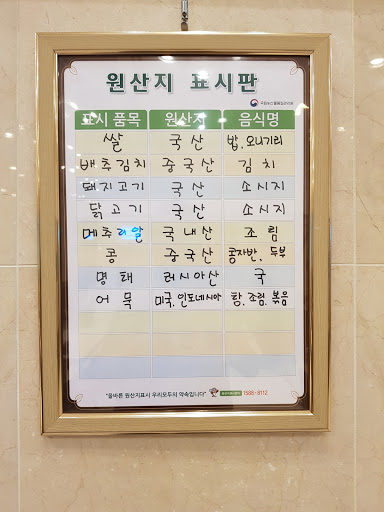 원산지 표시판
국립농산물품질관리원
표시 품목 원산지 음식명
쌀 국산 밥, 오니기리
배추김치 중국산 김치
돼지고기 국산 소시지
닭고기 국산 소시지
메추리알 국내산 조림
콩 중국산 콩자반, 두부
명태 러시아산 국
어묵 미국, 인도네시아 탕, 조림, 볶음
"올바른 원산지표시 우리모두의 약속입니다" 1588-8112